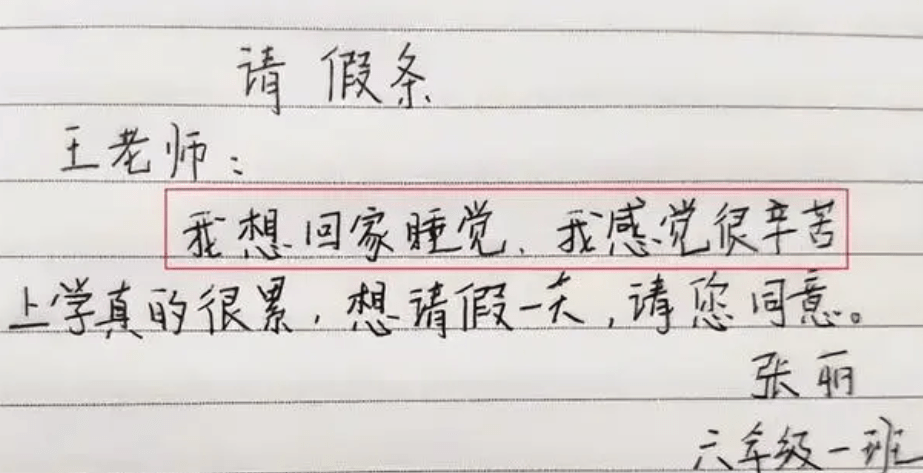 请假条
王老师：
我想回家睡觉，我感觉很辛苦
上学真的很累，想请假一天，请您同意。
张丽
六年级一班